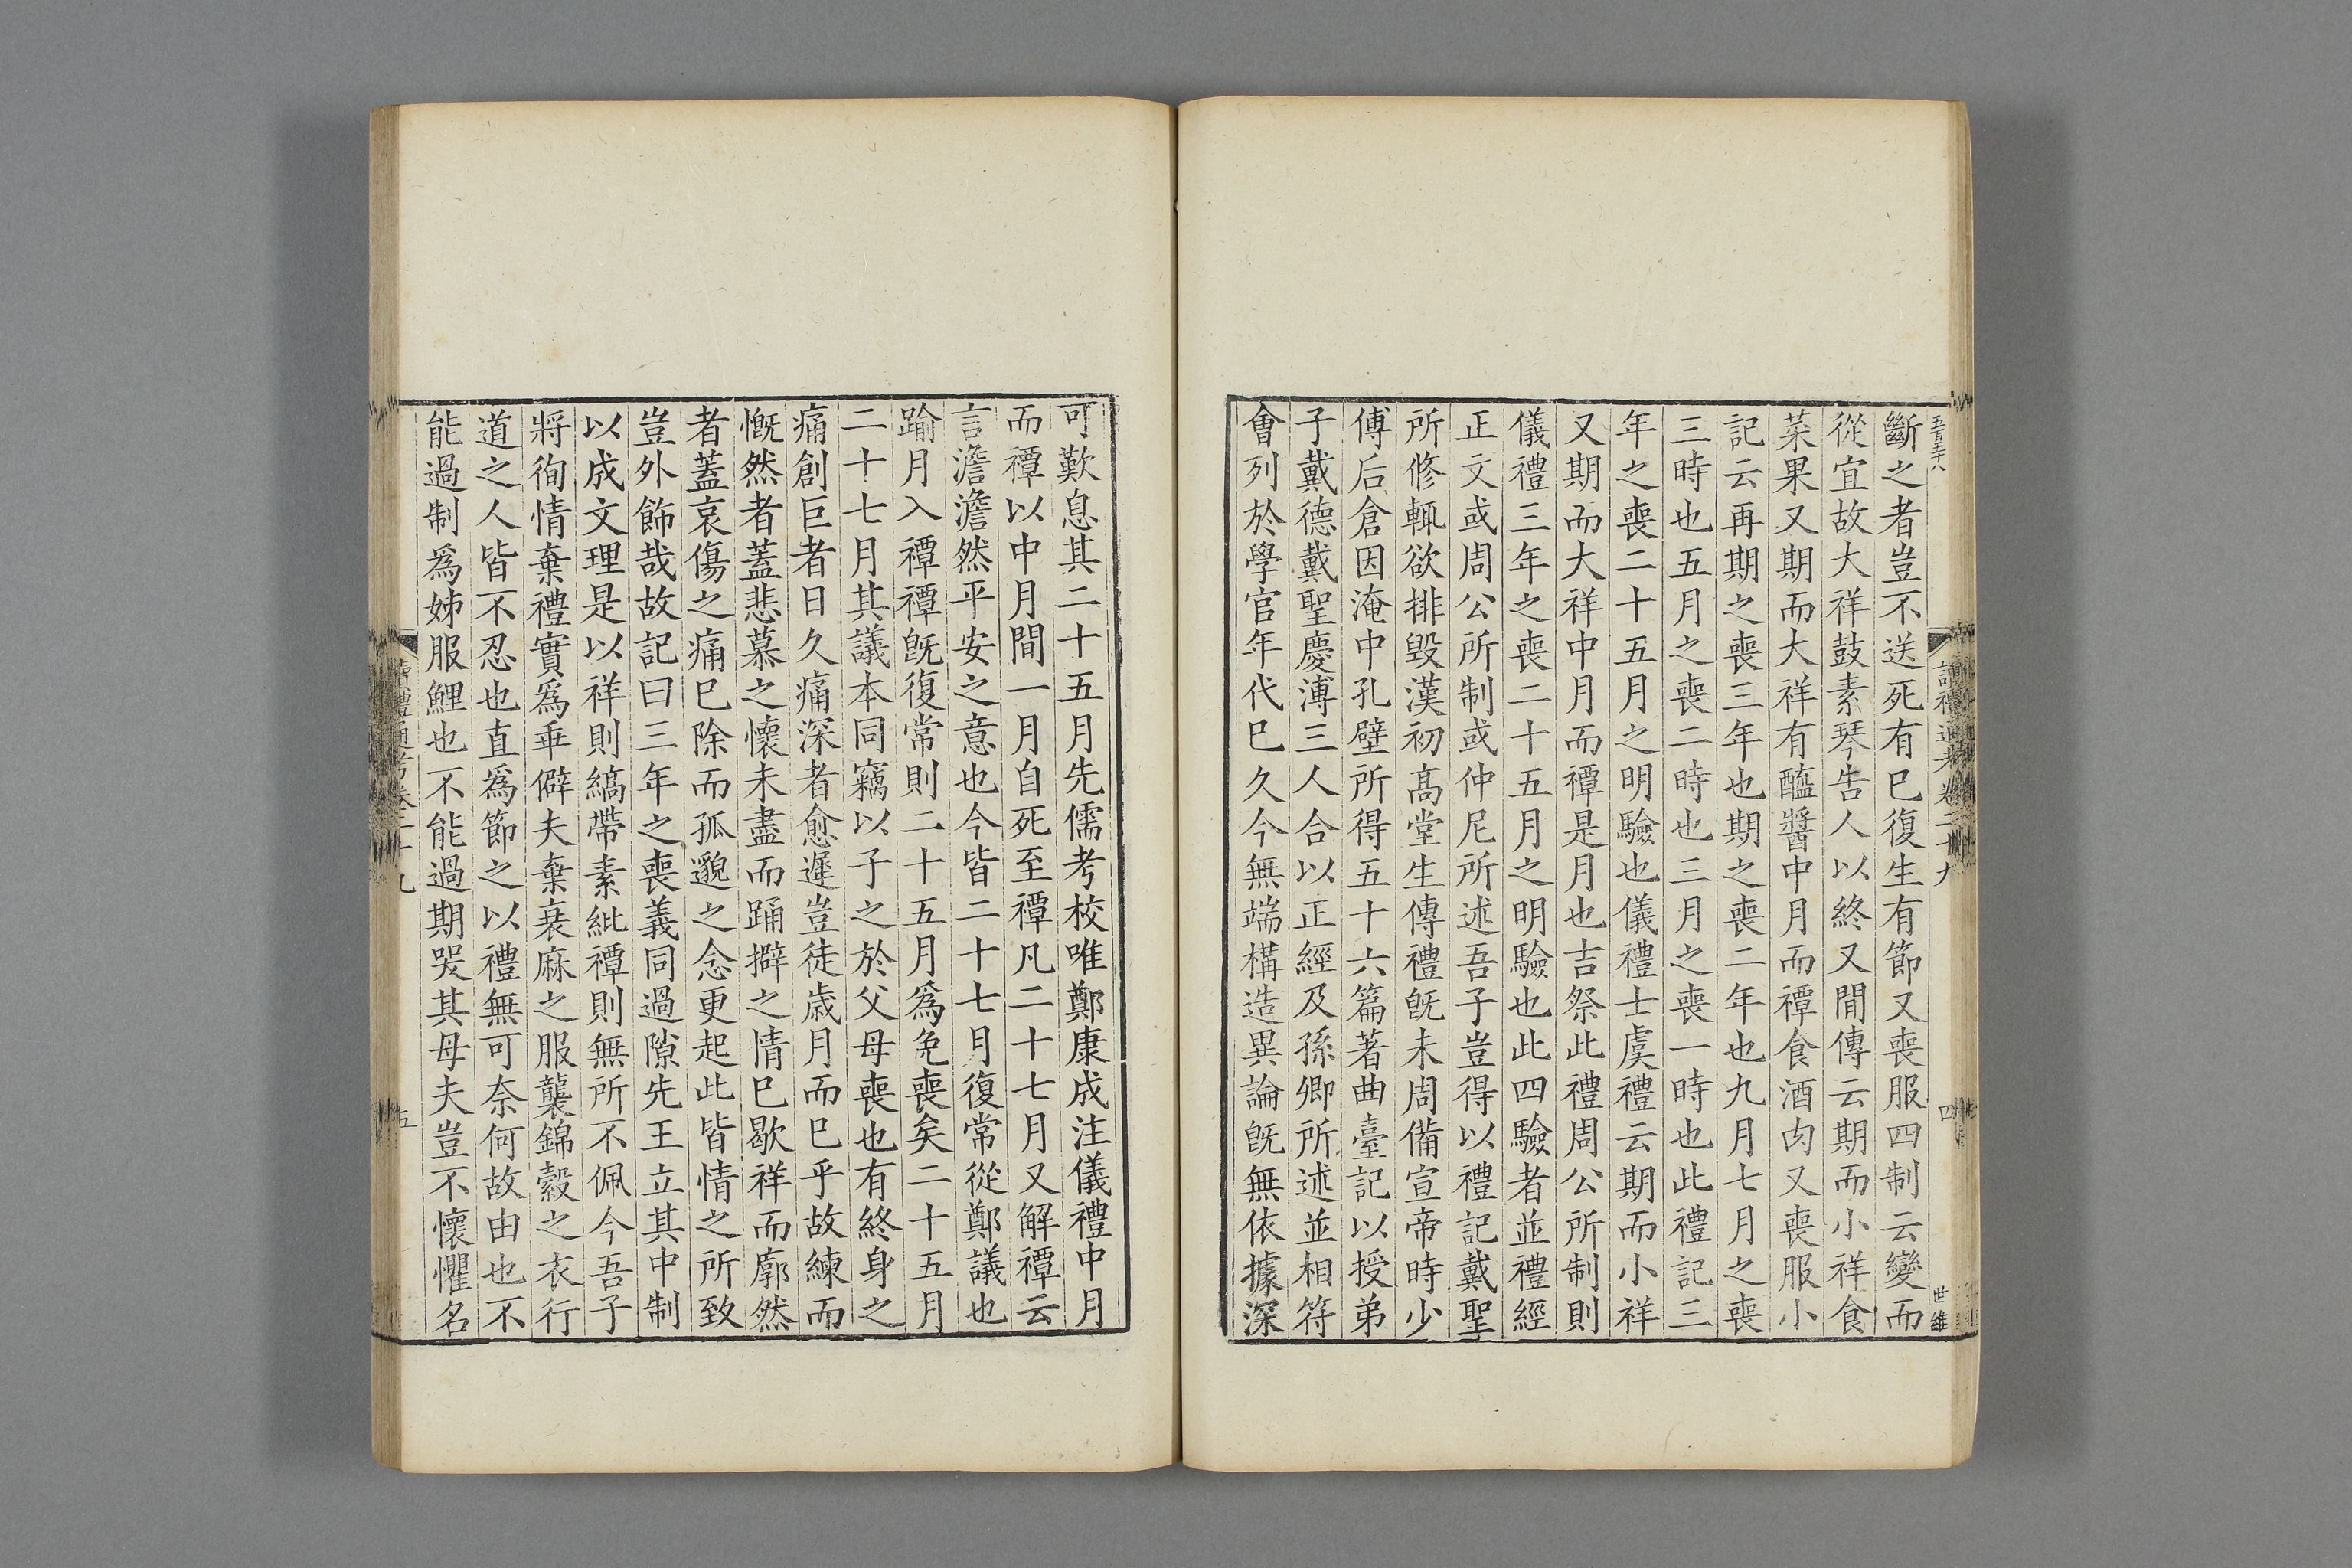 五百三十八
讀禮通考卷二十九
四
世維
斷之者豈不送死有巳復生有節又喪服四制云變而
從宜故大祥鼓素琴告人以終又間傳云期而小祥食
菜果又期而大祥有醯醬中月而禫食酒肉又喪服小
記云再期之喪三年也期之喪二年也九月七月之喪
三時也五月之喪二時也三月之喪一時也此禮記三
年之喪二十五月之明驗也儀禮士虞禮云期而小祥
又期而大祥中月而禫是月也吉祭此禮周公所制則
儀禮三年之喪二十五月之明驗也此四驗者並禮經
正文或周公所制或仲尼所述吾子豈得以禮記戴聖
所修輒欲排毀漢初高堂生傳禮旣未周備宣帝時少
傅后倉因淹中孔壁所得五十六篇著曲臺記以授弟
子戴德戴聖慶溥三人合以正經及孫卿所述並相符
會列於學官年代巳久今無端構造異論旣無依據深
可歎息其二十五月先儒考校唯鄭康成注儀禮中月
而禫以中月間一月自死至禫凡二十七月又解禫云
言澹澹然平安之意也今皆二十七月復常從鄭議也
踰月入禫禫旣復常則二十五月爲免喪矣二十五月
二十七月其議本同竊以子之於父母喪也有終身之
痛創巨者日久痛深者愈遲豈徒歲月而巳乎故練而
慨然者蓋悲慕之懷未盡而踊擗之情巳歇祥而廓然
者蓋哀傷之痛巳除而孤邈之念更起此皆情之所致
豈外飾哉故記曰三年之喪義同過隙先王立其中制
以成文理是以祥則縞帶素紕禫則無所不佩今吾子
將徇情棄禮實爲乖僻夫棄衰麻之服襲錦縠之衣行
道之人皆不忍也直爲節之以禮無可奈何故由也不
能過制爲姊服鯉也不能過期哭其母夫豈不懷懼名
讀禮通考卷二十九
五